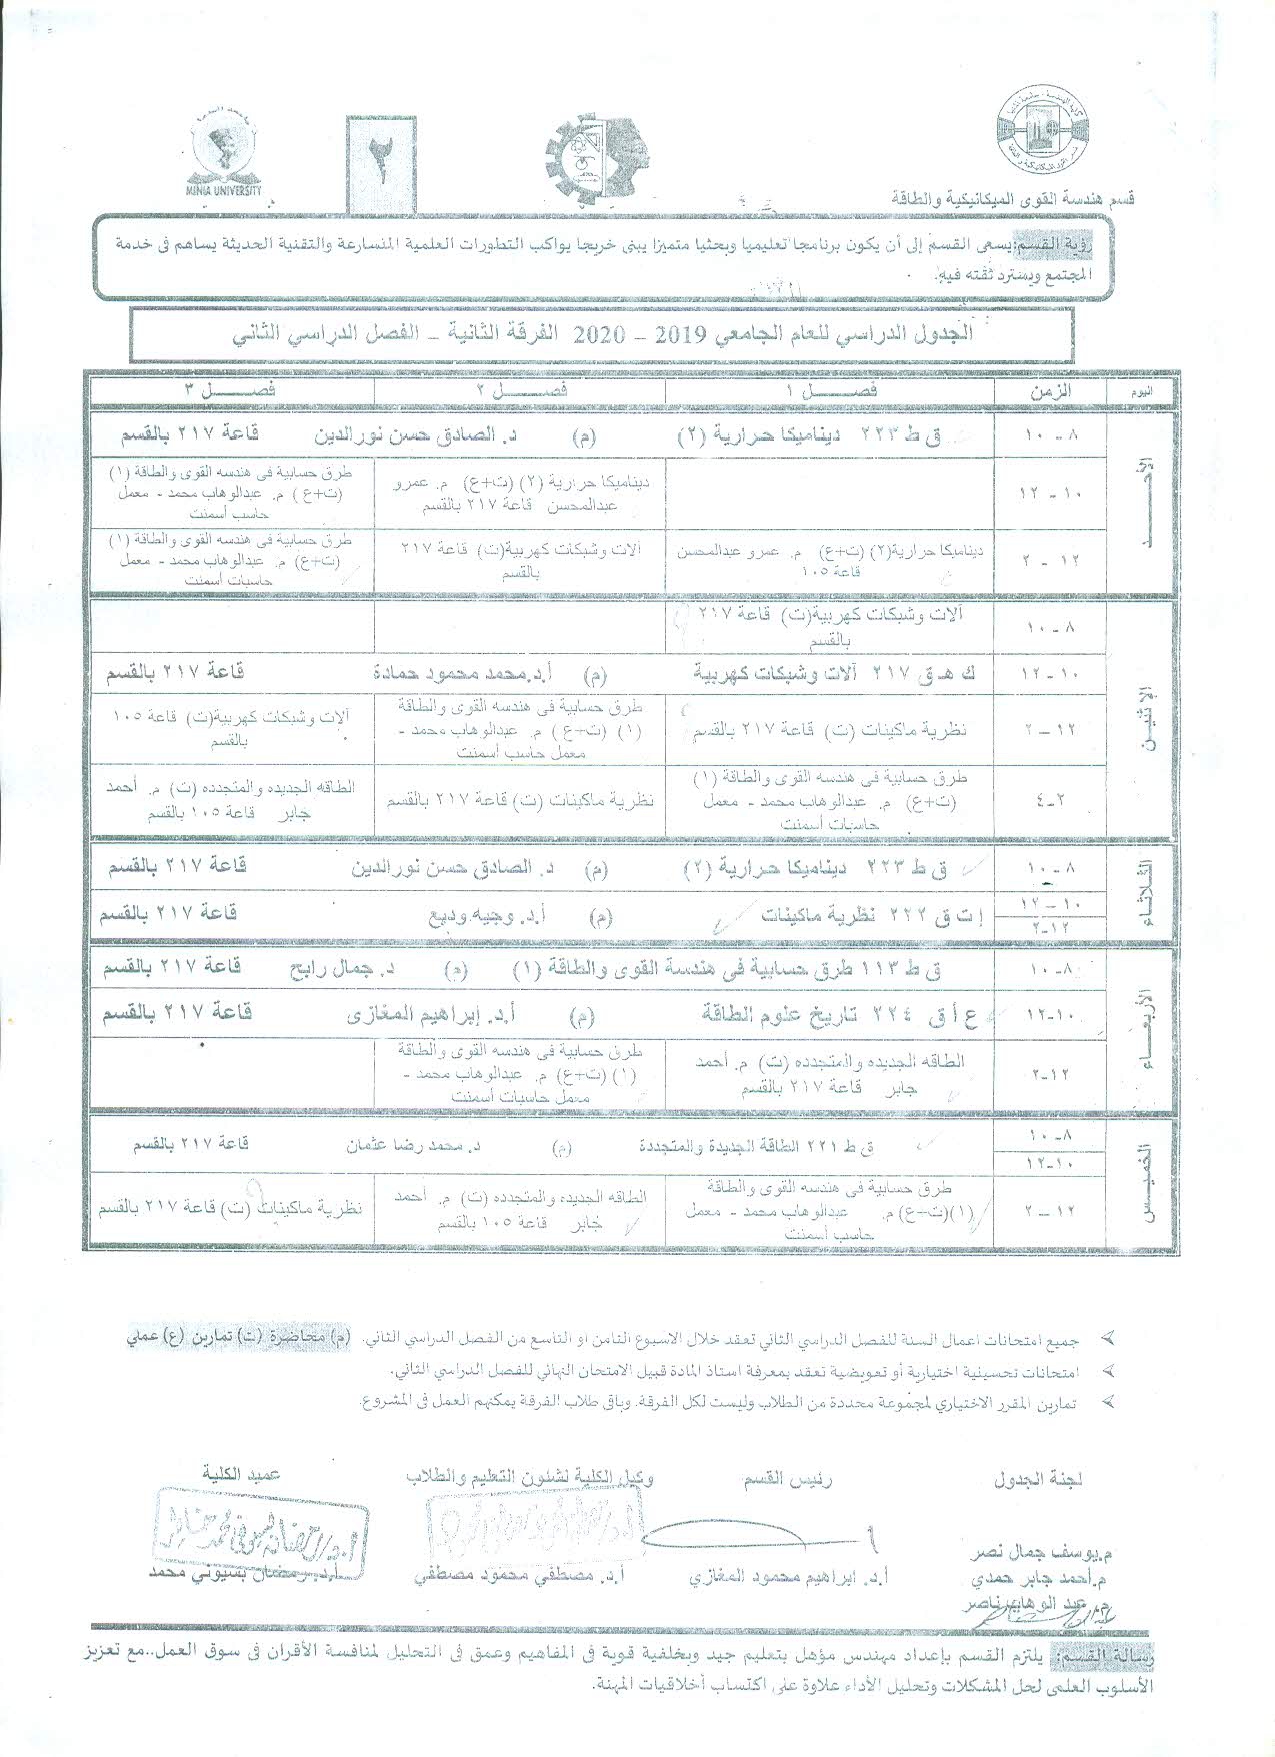 MINIA UNIVERSITY
٢
قسم هندسة القوى الميكانيكية والطاقة
رؤية القسم:يسعى القسم إلى أن يكون برنامجا تعليميا وبحثيا متميزا يبنى خريجا يواكب التطورات العلمية المتسارعة والتقنية الحديثة يساهم فى خدمة
المجتمع ويسترد ثقته فيه.
الجدول الدراسي للعام الجامعي 2019 – 2020 الفرقة الثانية – الفصل الدراسي الثاني
اليوم الزمن فصـــــل ١ فصـــــل ٢ فصـــــل ٣
الأحـــــد
٨ - ١٠ ق ط ٢٢٣ ديناميكا حرارية (٢) (م) د. الصادق حسن نورالدين قاعة ٢١٧ بالقسم
١٠ - ١٢
ديناميكا حرارية (٢) (ت+ع) م. عمرو
عبدالمحسن قاعة ٢١٧ بالقسم
طرق حسابية فى هندسه القوى والطاقة (١)
(ت+ع) م. عبدالوهاب محمد - معمل
حاسب أسمنت
١٢ - ٢
ديناميكا حرارية(٢) (ت+ع) م. عمرو عبدالمحسن
قاعة ١٠٥
آلات وشبكات كهربية(ت) قاعة ٢١٧
بالقسم
طرق حسابية فى هندسه القوى والطاقة (١)
(ت+ع) م. عبدالوهاب محمد - معمل
حاسبات أسمنت
الإثنيـــن
٨ - ١٠
آلات وشبكات كهربية(ت) قاعة ٢١٧
بالقسم
١٠ - ١٢ ك هـ ق ٢١٧ آلات وشبكات كهربية (م) أ.د.محمد محمود حمادة قاعة ٢١٧ بالقسم
١٢ – ٢
نظرية ماكينات (ت) قاعة ٢١٧ بالقسم
طرق حسابية فى هندسه القوى والطاقة
(١) (ت–ع) م. عبدالوهاب محمد -
معمل حاسب أسمنت
آلات وشبكات كهربية(ت) قاعة ١٠٥
بالقسم
٢-٤
طرق حسابية فى هندسه القوى والطاقة (١)
(ت+ع) م. عبدالوهاب محمد - معمل
حاسبات أسمنت
نظرية ماكينات (ت) قاعة ٢١٧ بالقسم
الطاقه الجديده والمتجدده (ت) م. أحمد
جابر قاعة ١٠٥ بالقسم
الثلاثـاء
٨ - ١٠ ق ط ٢٢٣ ديناميكا حرارية (٢) (م) د. الصادق حسن نورالدين قاعة ٢١٧ بالقسم
١٠ - ١٢
١٢-٢
إ ت ق ٢٢٢ نظرية ماكينات (م) أ.د. وجيه.وديع قاعة ٢١٧ بالقسم
الأربعـــاء
٨-١٠ ق ط ١١٣ طرق حسابية فى هندسة القوى والطاقة (١) (م) د. جمال رابح قاعة ٢١٧ بالقسم
١٠-١٢ ع أ ق ٢٢٤ تاريخ علوم الطاقة (م) أ.د. إبراهيم المغازى قاعة ٢١٧ بالقسم
١٢-٢
الطاقه الجديده والمتجدده (ت) م. أحمد
جابر قاعة ٢١٧ بالقسم
طرق حسابية فى هندسه القوى والطاقة
(١) (ت+ع) م. عبدالوهاب محمد -
معمل حاسبات أسمنت
الخميـس
٨- ١٠
١٠-١٢
ق ط ٢٢١ الطاقة الجديدة والمتجددة (م) د. محمد رضا عثمان قاعة ٢١٧ بالقسم
١٢ – ٢
طرق حسابية فى هندسه القوى والطاقة
(١)(ت–ع) م. عبدالوهاب محمد - معمل
حاسب أسمنت
الطاقه الجديده والمتجدده (ت) م. أحمد
جابر قاعة ١٠٥ بالقسم
نظرية ماكينات (ت) قاعة ٢١٧ بالقسم
جميع امتحانات اعمال السنة للفصل الدراسي الثاني تعقد خلال الاسبوع الثامن او التاسع من الفصل الدراسي الثاني. (م) محاضرة (ت) تمارين (ع) عملي
امتحانات تحسينية اختيارية أو تعويضية تعقد بمعرفة استاذ المادة قبيل الامتحان النهائي للفصل الدراسي الثاني.
تمارين المقرر الاختياري لمجموعة محددة من الطلاب وليست لكل الفرقة. وباقى طلاب الفرقة يمكنهم العمل فى المشروع.
لجنة الجدول رئيس القسم وكيل الكلية لشئون التعليم والطلاب عميد الكلية
م.يوسف جمال نصر
م.أحمد جابر حمدي أ.د. ابراهيم محمود المغازي أ.د. مصطفي محمود مصطفي أ.د. رمضان بسيوني محمد
م. عبد الوهاب ناصر
رسالة القسم: يلتزم القسم بإعداد مهندس مؤهل بتعليم جيد وبخلفية قوية فى المفاهيم وعمق فى التحليل لمنافسة الأقران فى سوق العمل..مع تعزيز
الأسلوب العلمى لحل المشكلات وتحليل الأداء علاوة على اكتساب أخلاقيات المهنة.